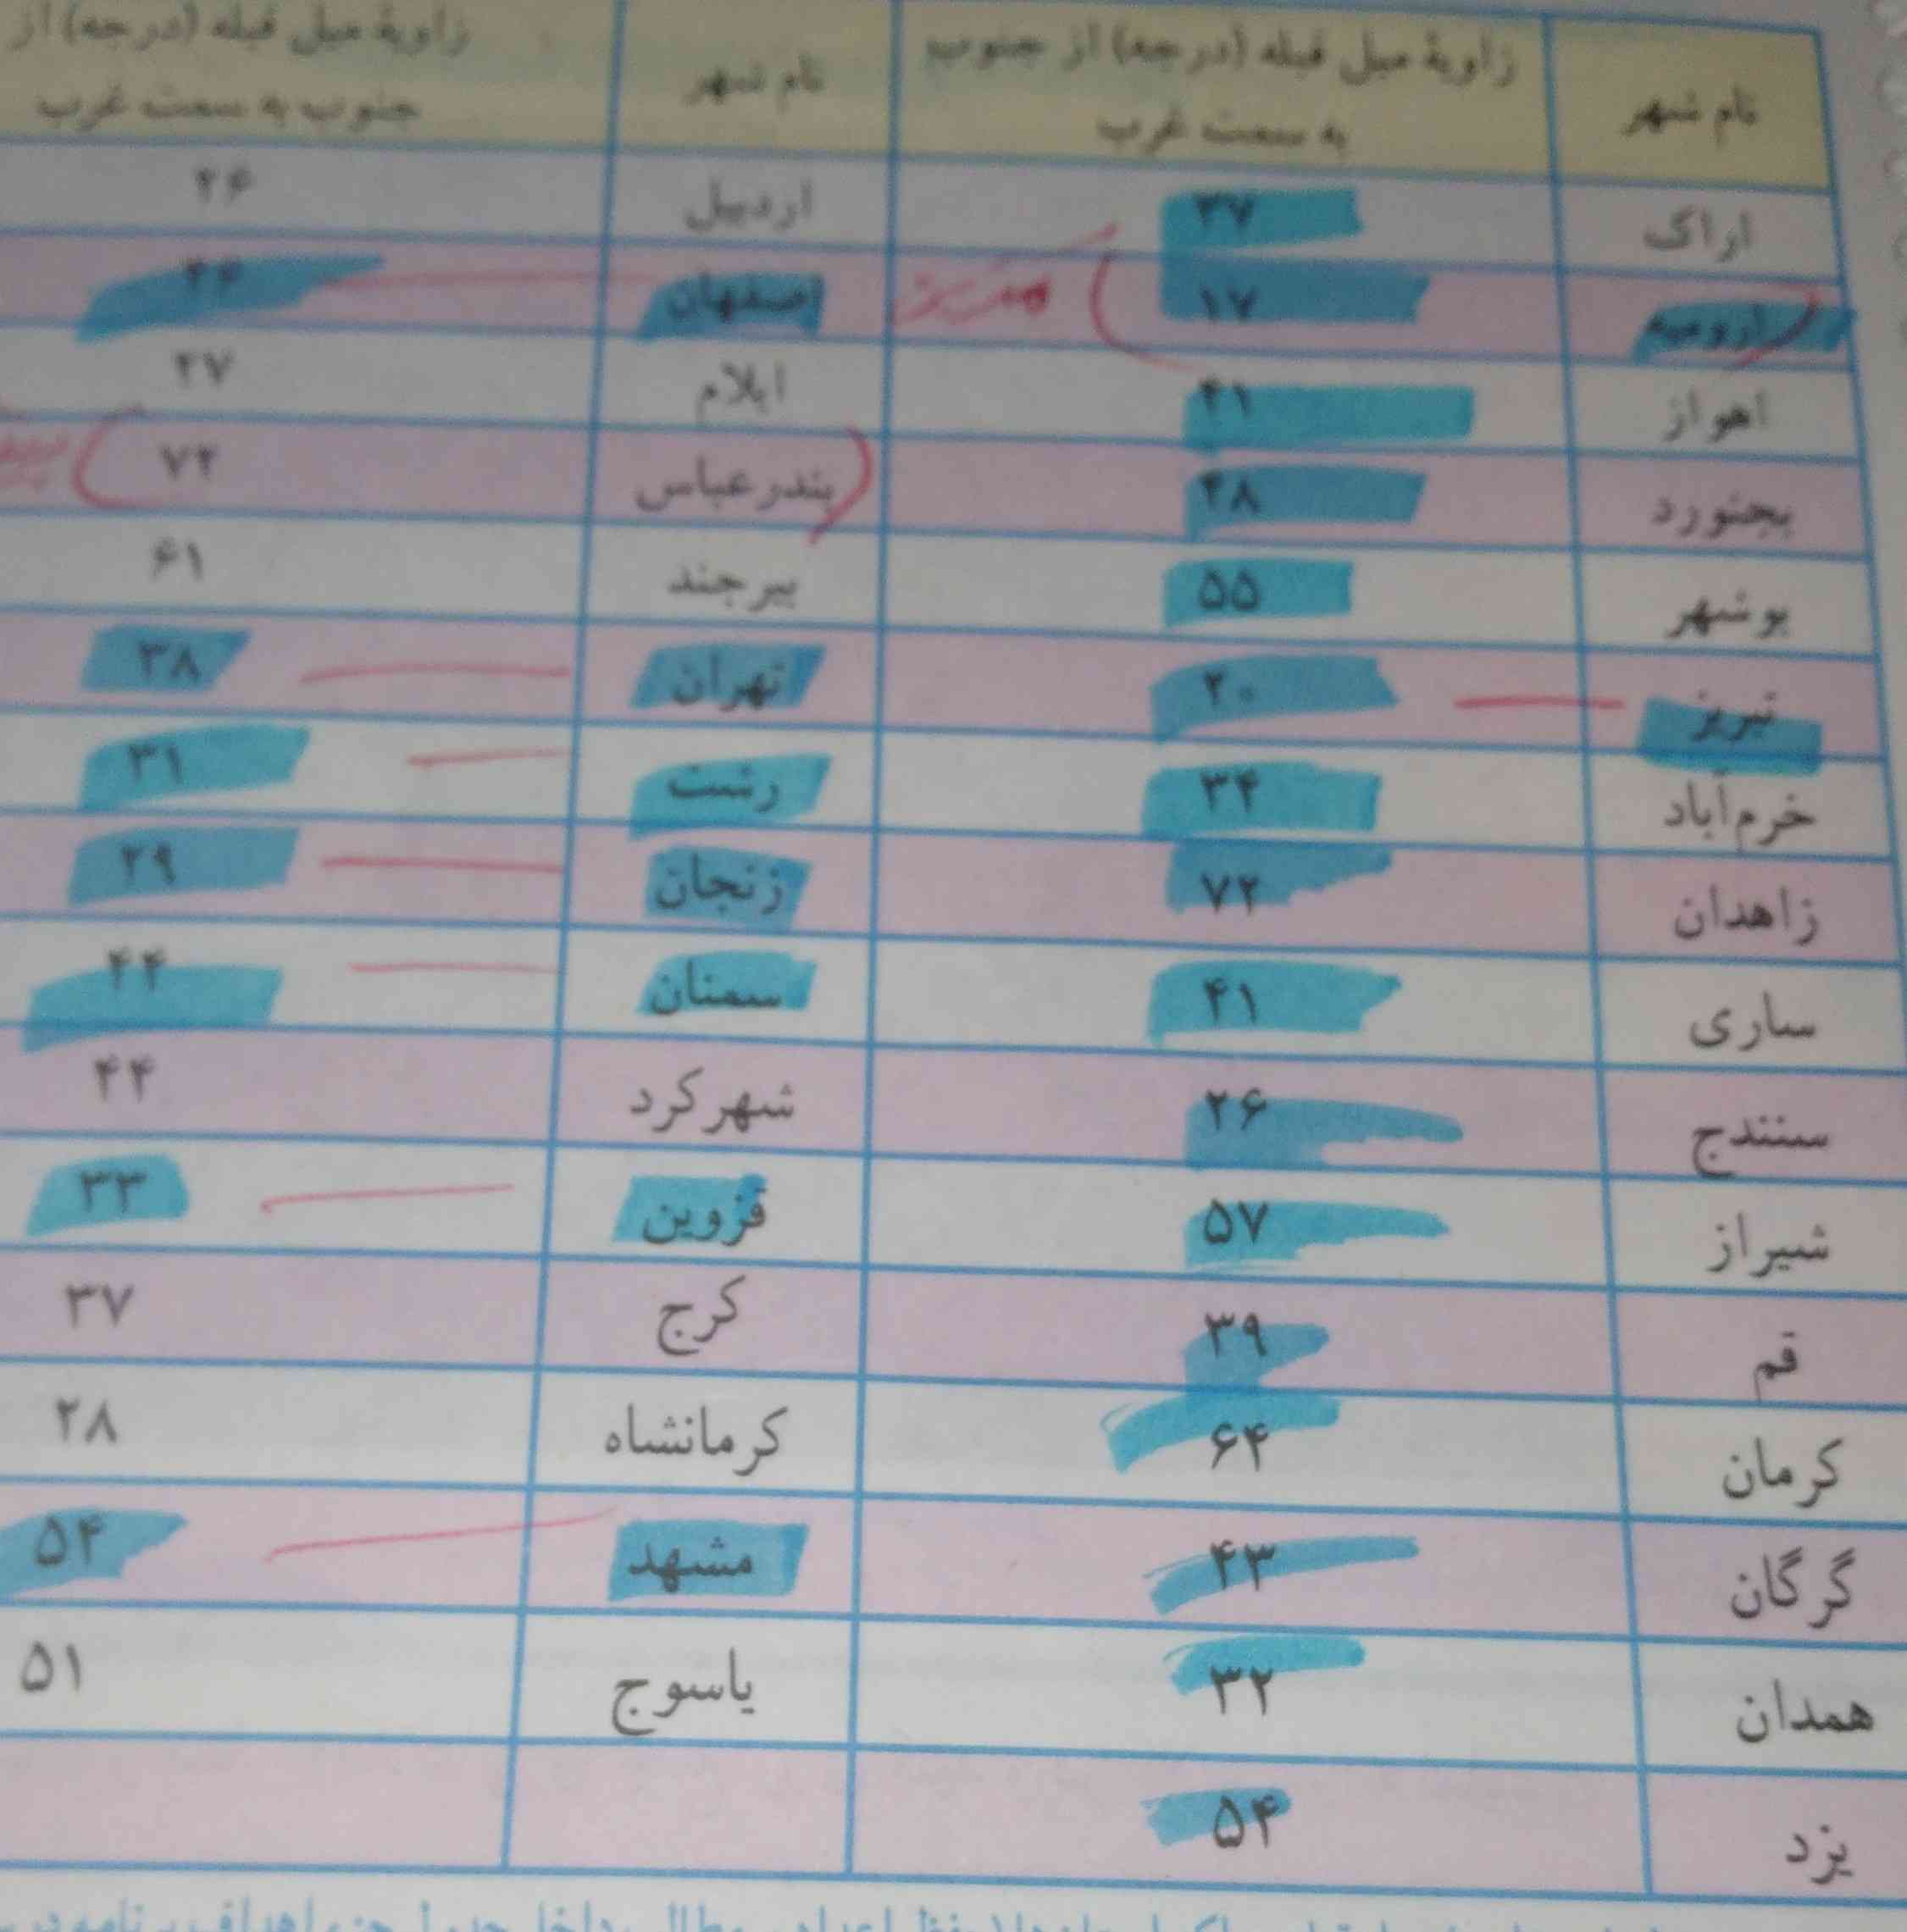 نام شهر زاویهٔ میل قبله (درجه) از جنوب به سمت غرب نام شهر زاویهٔ میل قبله (درجه) از جنوب به سمت غرب
اراک ۳۷ اردبیل ۲۶
ارومیه ۱۷ اصفهان ۴۶
اهواز ۴۱ ایلام ۲۷
بجنورد ۴۸ بندرعباس ۷۲
بوشهر ۵۵ بیرجند ۶۱
تبریز ۲۰ تهران ۳۸
خرم‌آباد ۳۴ رشت ۳۱
زاهدان ۷۲ زنجان ۲۹
ساری ۴۱ سمنان ۴۴
سنندج ۲۶ شهرکرد ۴۴
شیراز ۵۷ قزوین ۳۳
قم ۳۹ کرج ۳۷
کرمان ۶۴ کرمانشاه ۲۸
گرگان ۴۳ مشهد ۵۴
همدان ۳۲ یاسوج ۵۱
یزد ۵۴